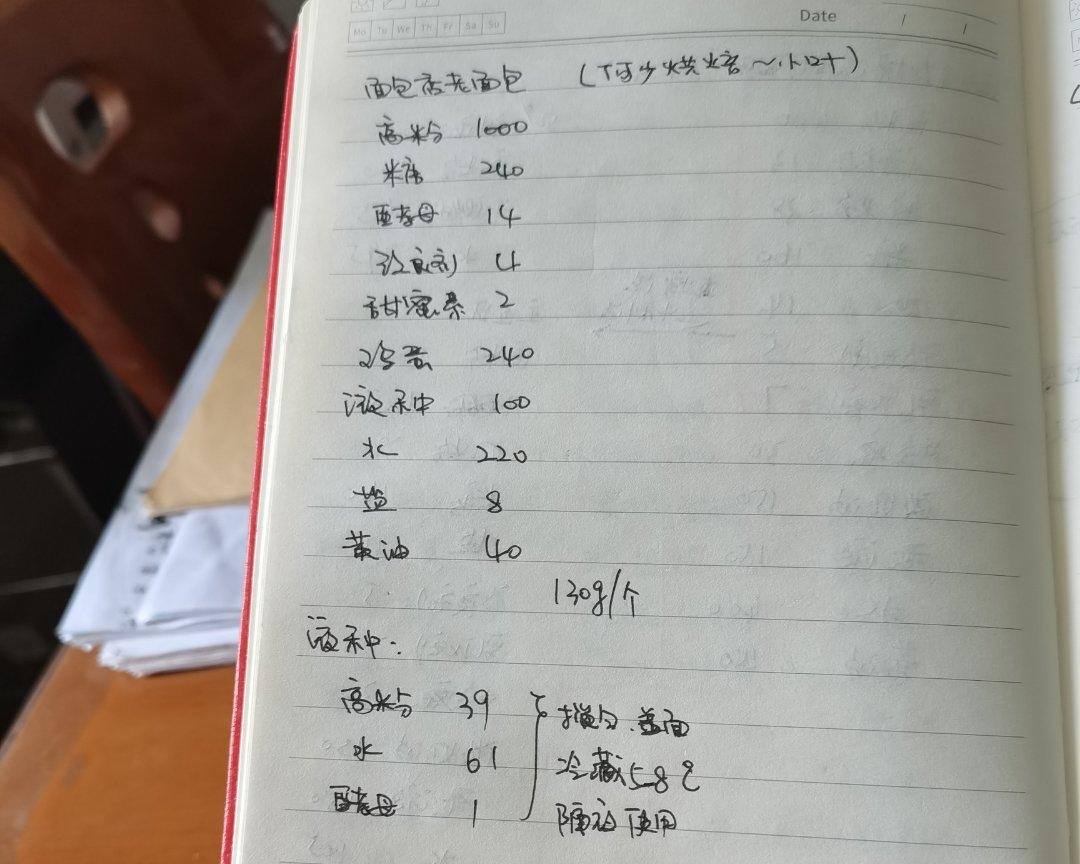 Mo Tu We Th Fr Sa Su
Date / /
面包店老面包 （阿少烘焙～小叶）
高粉 1000
米糖 240
酵母 14
改良剂 4
甜蜜素 2
冷蛋 240
液种 100
水 220
盐 8
黄油 40
130g/个
液种：
高粉 39
水 61
酵母 1
搅匀、盖面
冷藏 5-8℃
隔夜使用